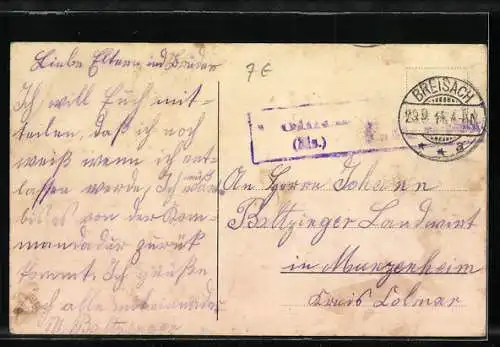 Liebe Eltern und Brüder
Ich will Euch mit-
teilen, daß ich noch
weiß wenn ich ent-
lassen werde, Ich muß
von der Kom-
mandadur zurück
kommt. Ich grüße
alle miteinander
M. Baltzinger
7 €
BREISACH
29.9.14. 4-5N
* * a
(Els.)
An Herrn Johann
Baltzinger Landwirt
in Munzenheim
Kreis Colmar